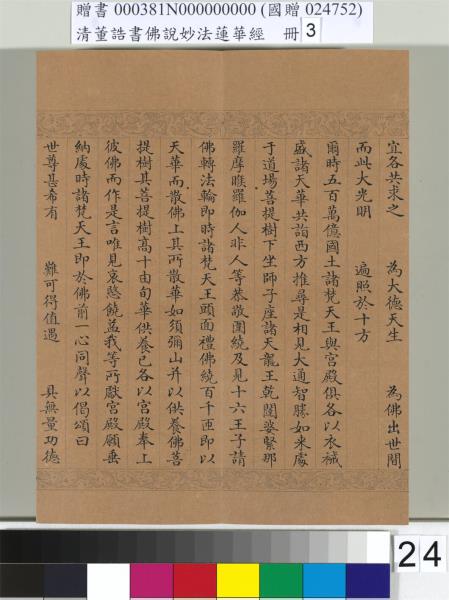 贈書 000381N000000000 (國贈 024752)
清董誥書佛說妙法蓮華經 冊 3
宜各共求之 為大德天生 為佛出世間
而此大光明 遍照於十方
爾時五百萬億國土諸梵天王與宮殿俱各以衣祴
盛諸天華共詣西方推尋是相見大通智勝如來處
于道場菩提樹下坐師子座諸天龍王乾闥婆緊那
羅摩睺羅伽人非人等恭敬圍繞及見十六王子請
佛轉法輪即時諸梵天王頭面禮佛繞百千匝即以
天華而散佛上其所散華如須彌山并以供養佛菩
提樹其菩提樹高十由旬華供養已各以宮殿奉上
彼佛而作是言唯見哀愍饒益我等所獻宮殿願垂
納處時諸梵天王即於佛前一心同聲以偈頌曰
世尊甚希有 難可得值遇 具無量功德
24